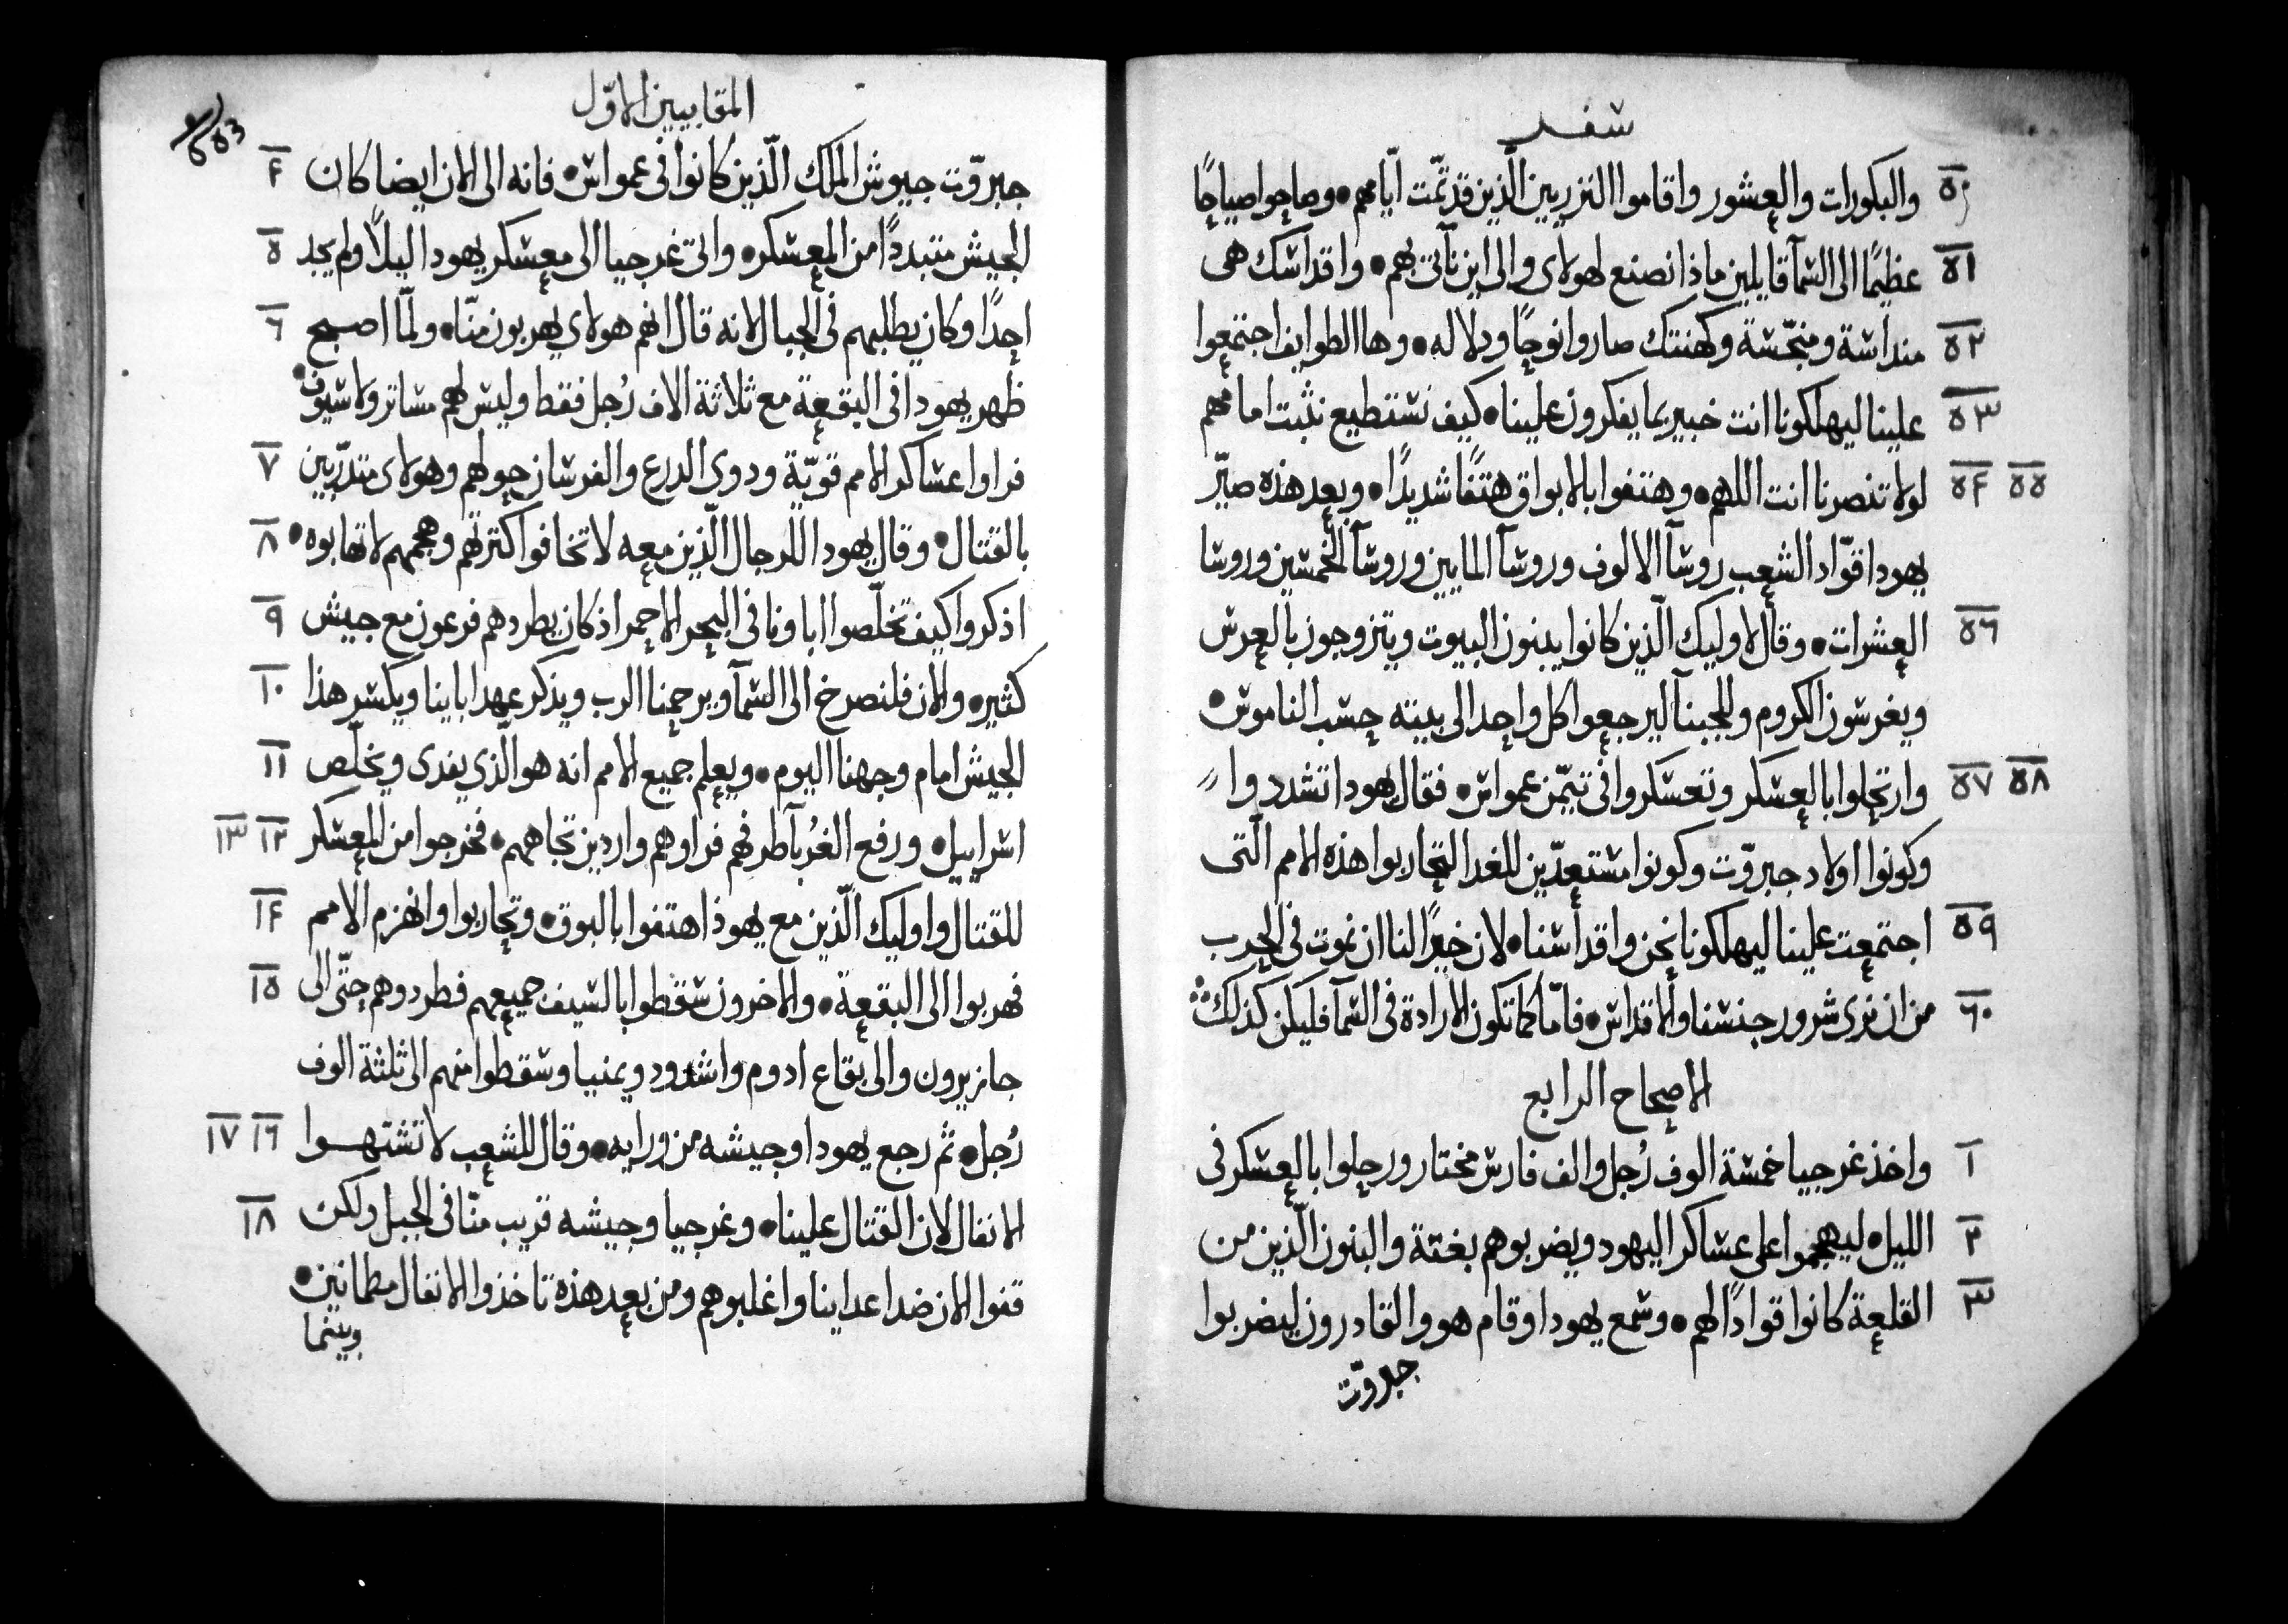 سفر
٥٠ والبكورات والعشور واقاموا النزريين الّذين قد تمّت ايّامهم • وصاحوا صياحًا
٥١ عظيمًا الى السمآ قايلين ماذا نصنع لهولاى والى اين نأتى بهم • واقداسك هى
٥٢ منداسة ومنجّسة وكهنتك صاروا نوحًا ودلاله • وها الطوايف اجتمعوا
٥٣ علينا ليهلكونا انت خبير بما يفكرون علينا • كيف نستطيع نثبت امامهم
٥٤ ٥٥ لولا تنصرنا انت اللهم • وهتفوا بالابواق هتفًا شديدًا • وبعد هذه صيّر
يهودا قوّاد الشعب روسآ الالوف وروسآ المايين وروسآ الخمسين وروسا
٥٦ العشرات • وقال لاوليك الّذين كانوا يبنون البيوت ويتزوجون بالعرس
ويغرسون الكروم وللجبنآ ليرجعوا كل واحد الى بيته حسب الناموس •
٥٧ ٥٨ وارتحلوا بالعسكر وتعسكروا فى تيمّن عمواس • فقال يهودا تشددوا
وكونوا اولاد جبروّت وكونوا مستعدّين للغد لتحاربوا هذه الامم الّتى
٥٩ اجتمعت علينا ليهلكونا نحن واقداسنا • لان خيرًا لنا ان نموت فى الحرب
٦٠ من ان نرى شرور جنسنا والاقداس • فامّا كما تكون الارادة فى السمآ فليكن كذلك
الاصحاح الرابع
١ واخذ غرجيا خمسة الوف رُجل والف فارس مختار ورحلوا بالعسكر فى
٢ الليل • ليهجموا على عساكر اليهود ويضربوهم بغتة والبنون الّذين من
٣ القلعة كانوا قوادًا لهم • وسمع يهودا وقام هو والقادرون ليضربوا
جبروّت
المقابيين الاوّل
٤ جبروّت جيوش الملك الّذين كانوا فى عمواس • فانه الى الان ايضا كان
٥ الجيش متبددًا من المعسكر • واتى غرجيا الى معسكر يهودا ليلاً ولم يجد
٦ احدًا وكان يطلبهم فى الجبال لانه قال انهم هولاى يهربون منّا • ولمّا اصبح
ظهر يهودا فى البقعة مع ثلاثة الاف رُجل فقط وليس لهم مساتر ولا سيوف •
٧ فراوا عساكر الامم قويّة ودوى الدرع والفرسان حولهم وهولاى متدرّبين
٨ بالقتال • وقال يهودا للرجال الّذين معه لا تخافوا كثرتهم وهجمهم لا تهابوه •
٩ اذكروا كيف تخلّصوا اباونا فى البحر الاحمر اذ كان يطردهم فرعون مع جيش
١٠ كثير • والان فلنصرخ الى السمآ ويرحمنا الرب ويذكر عهد ابائنا ويكسر هذا
١١ الجيش امام وجهنا اليوم • ويعلم جميع الامم انه هو الّذي يفدى ويخلّص
١٢ ١٣ اسراييل • ورفع الغُربآ طرفهم فراوهم واردين تجاههم • فخرجوا من المعسكر
١٤ للقتال واوليك الّذين مع يهوذا هتفوا بالبوق • وتحاربوا وانهزم الامم
١٥ فهربوا الى البقعة • والاخرون سقطوا بالسيف جميعهم فطردوهم حتّى الى
جازيرون والى بقاع ادوم واشدود ويمنيا وسقطوا منهم الى ثلثة الوف
١٦ ١٧ رُجل • ثم رجع يهودا وجيشه من ورايه • وقال للشعب لا تشتهوا
١٨ الانفال لان القتال علينا • وغرجيا وجيشه قريب منّا فى الجبل ولكن
قفوا الان ضد اعداينا واغلبوهم ومن بعد هذه تاخذوا الانفال مطمانين •
وبينما